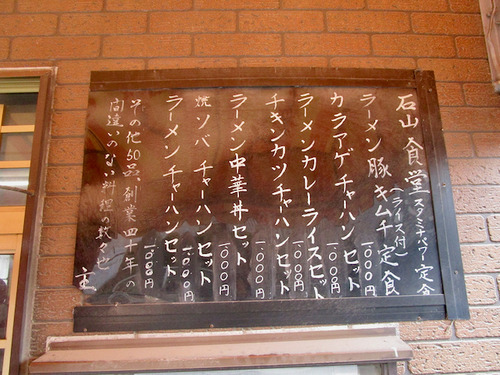 石山食堂 スタミナパワー定食
ラーメン豚キムチ定食 (ライス付) 1000円
カラアゲチャーハンセット 1000円
ラーメンカレーライスセット 1000円
チキンカツチャーハンセット 1000円
ラーメン中華丼セット 1000円
焼ソバチャーハンセット 1000円
ラーメンチャーハンセット 1000円
その他50品、創業四十年の
間違いのない料理の数々也
主